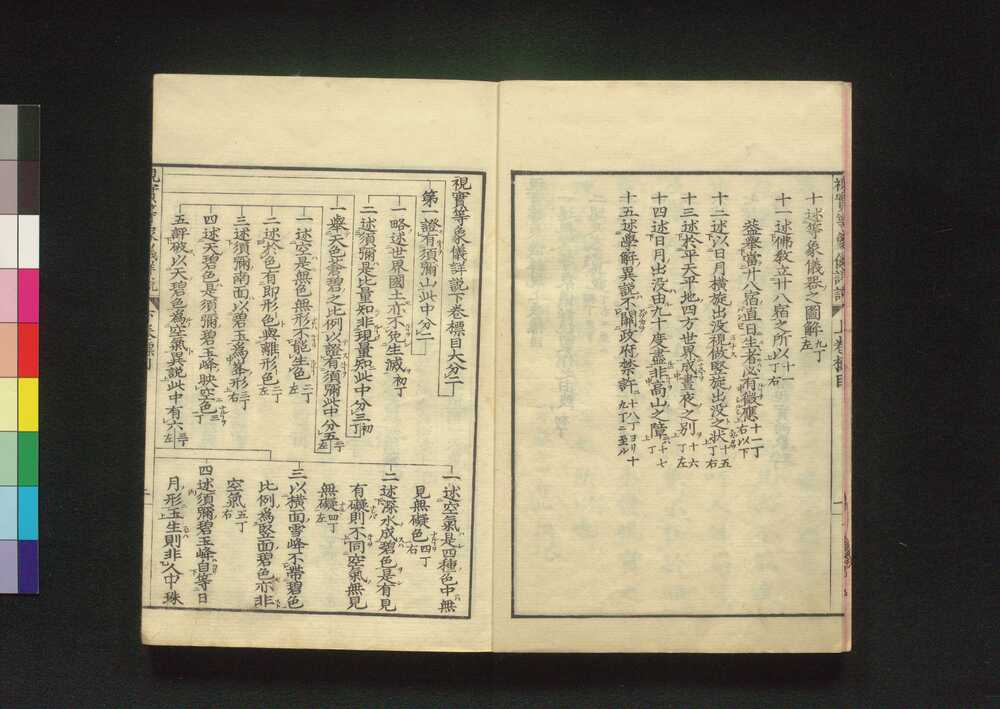 十述等象儀器之圖解 九丁左
十一述佛教立廿八宿之所以 十一丁右
益舉當廿八宿直日生者必有徵應 十一丁右以下
十二述以日月橫旋出没視做竪旋出没之状 十五丁右
十三述於平天平地四方世界成晝夜之別 十六丁左
十四述日月出没由九十度盡非高山之障 十七丁
十五述學解異説不關政府禁許 十八丁ヨリ十九丁ニ至ル
視實等象儀詳説下卷標目大分二
第一證有須彌山此中分二
一略述世界國土亦不免生滅 初丁
二述須彌是比量知非現量知此中分三 初丁
一舉天色蒼碧之比例以證有須彌此中分五 二丁左
一述空是無色無形不能生色 二丁左
二述於色有即形色與離形色 二丁左
三述須彌南面以碧玉爲峯形 三丁右
四述天碧色是須彌碧玉峰映空色 三丁
五評破以天碧色爲空氣異説此中有六 三丁左
一述空氣是四種色中無
見無礙色 四丁右
二述深水成碧色是有見
有礙則不同空氣無見
無礙 四丁左
三以橫面雪峰不帶碧色
比例爲竪面碧色亦非
空氣 五丁右
四述須彌碧玉峰自等日
月形玉生則非人中珠